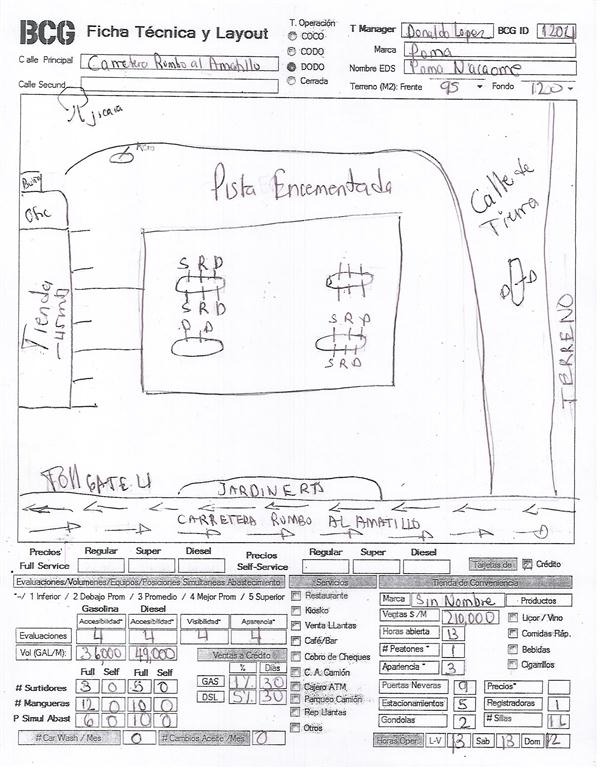 BCG Ficha Técnica y Layout
T. Operación
COCO
CODO
DODO
Cerrada
T Manager Donaldo Lopez BCG ID 1204
Marca Puma
Nombre EDS Puma Nacaome
Calle Principal Carretera Rumbo al Amatillo
Calle Secund
Terreno (M2): Frente 95 Fondo 120
Jicara
Pista Encementada
Calle de Tierra
Ofic
Tienda
45 m2
S R D
S R D
D D
S R D
S R D
D D
TERRENO
JARDINERA
CARRETERA RUMBO AL AMATILLO
Precios' Regular Super Diesel Precios Regular Super Diesel
Full Service Self-Service Tarjetas de Crédito
Evaluaciones/Volumenes/Equipos/Posiciones Simultaneas Abastecimiento Servicios Tienda de Conveniencia
*-/ 1 Inferior / 2 Debajo Prom / 3 Promedio / 4 Mejor Prom / 5 Superior
Gasolina Diesel
Accesibilidad* Accesibilidad* Visibilidad* Apariencia*
Evaluaciones 4 4 4 4
Vol (GAL/M): 36,000 49,000 Ventas a Crédito
Full Self Full Self % Días
# Surtidores 3 0 5 0 GAS 1% 30
# Mangueras 12 0 10 0 DSL 5% 30
P Simul Abast 6 0 10 0
# Car Wash / Mes 0 # Cambios Aceite /Mes 0
Restaurante
Kiosko
Venta Llantas
Café/Bar
Cobro de Cheques
C. A. Camión
Cajero ATM
Parqueo Camión
Rep Llantas
Otros
Marca Sin Nombre Productos
Ventas $ /M 210,000 Liçor / Vino
Horas abierta 13 Comidas Ráp.
# Peatones * 1 Bebidas
Apariencia * 3 Cigarrillos
Puertas Neveras 9 Precios*
Estacionamientos 5 Registradoras 1
Gondolas 2 # Sillas 12
Horas Oper. L-V 13 Sab 13 Dom 12